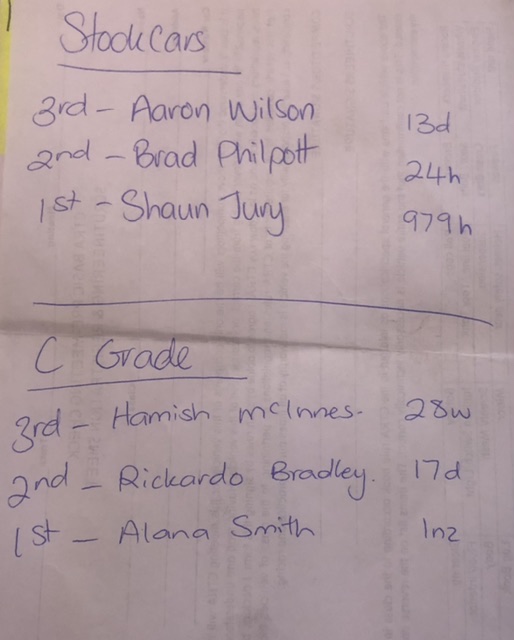 Stockcars
3rd - Aaron Wilson 13d
2nd - Brad Philpott 24h
1st - Shaun Jury 979h
C Grade
3rd - Hamish McInnes. 28w
2nd - Rickardo Bradley. 17d
1st - Alana Smith 1nz